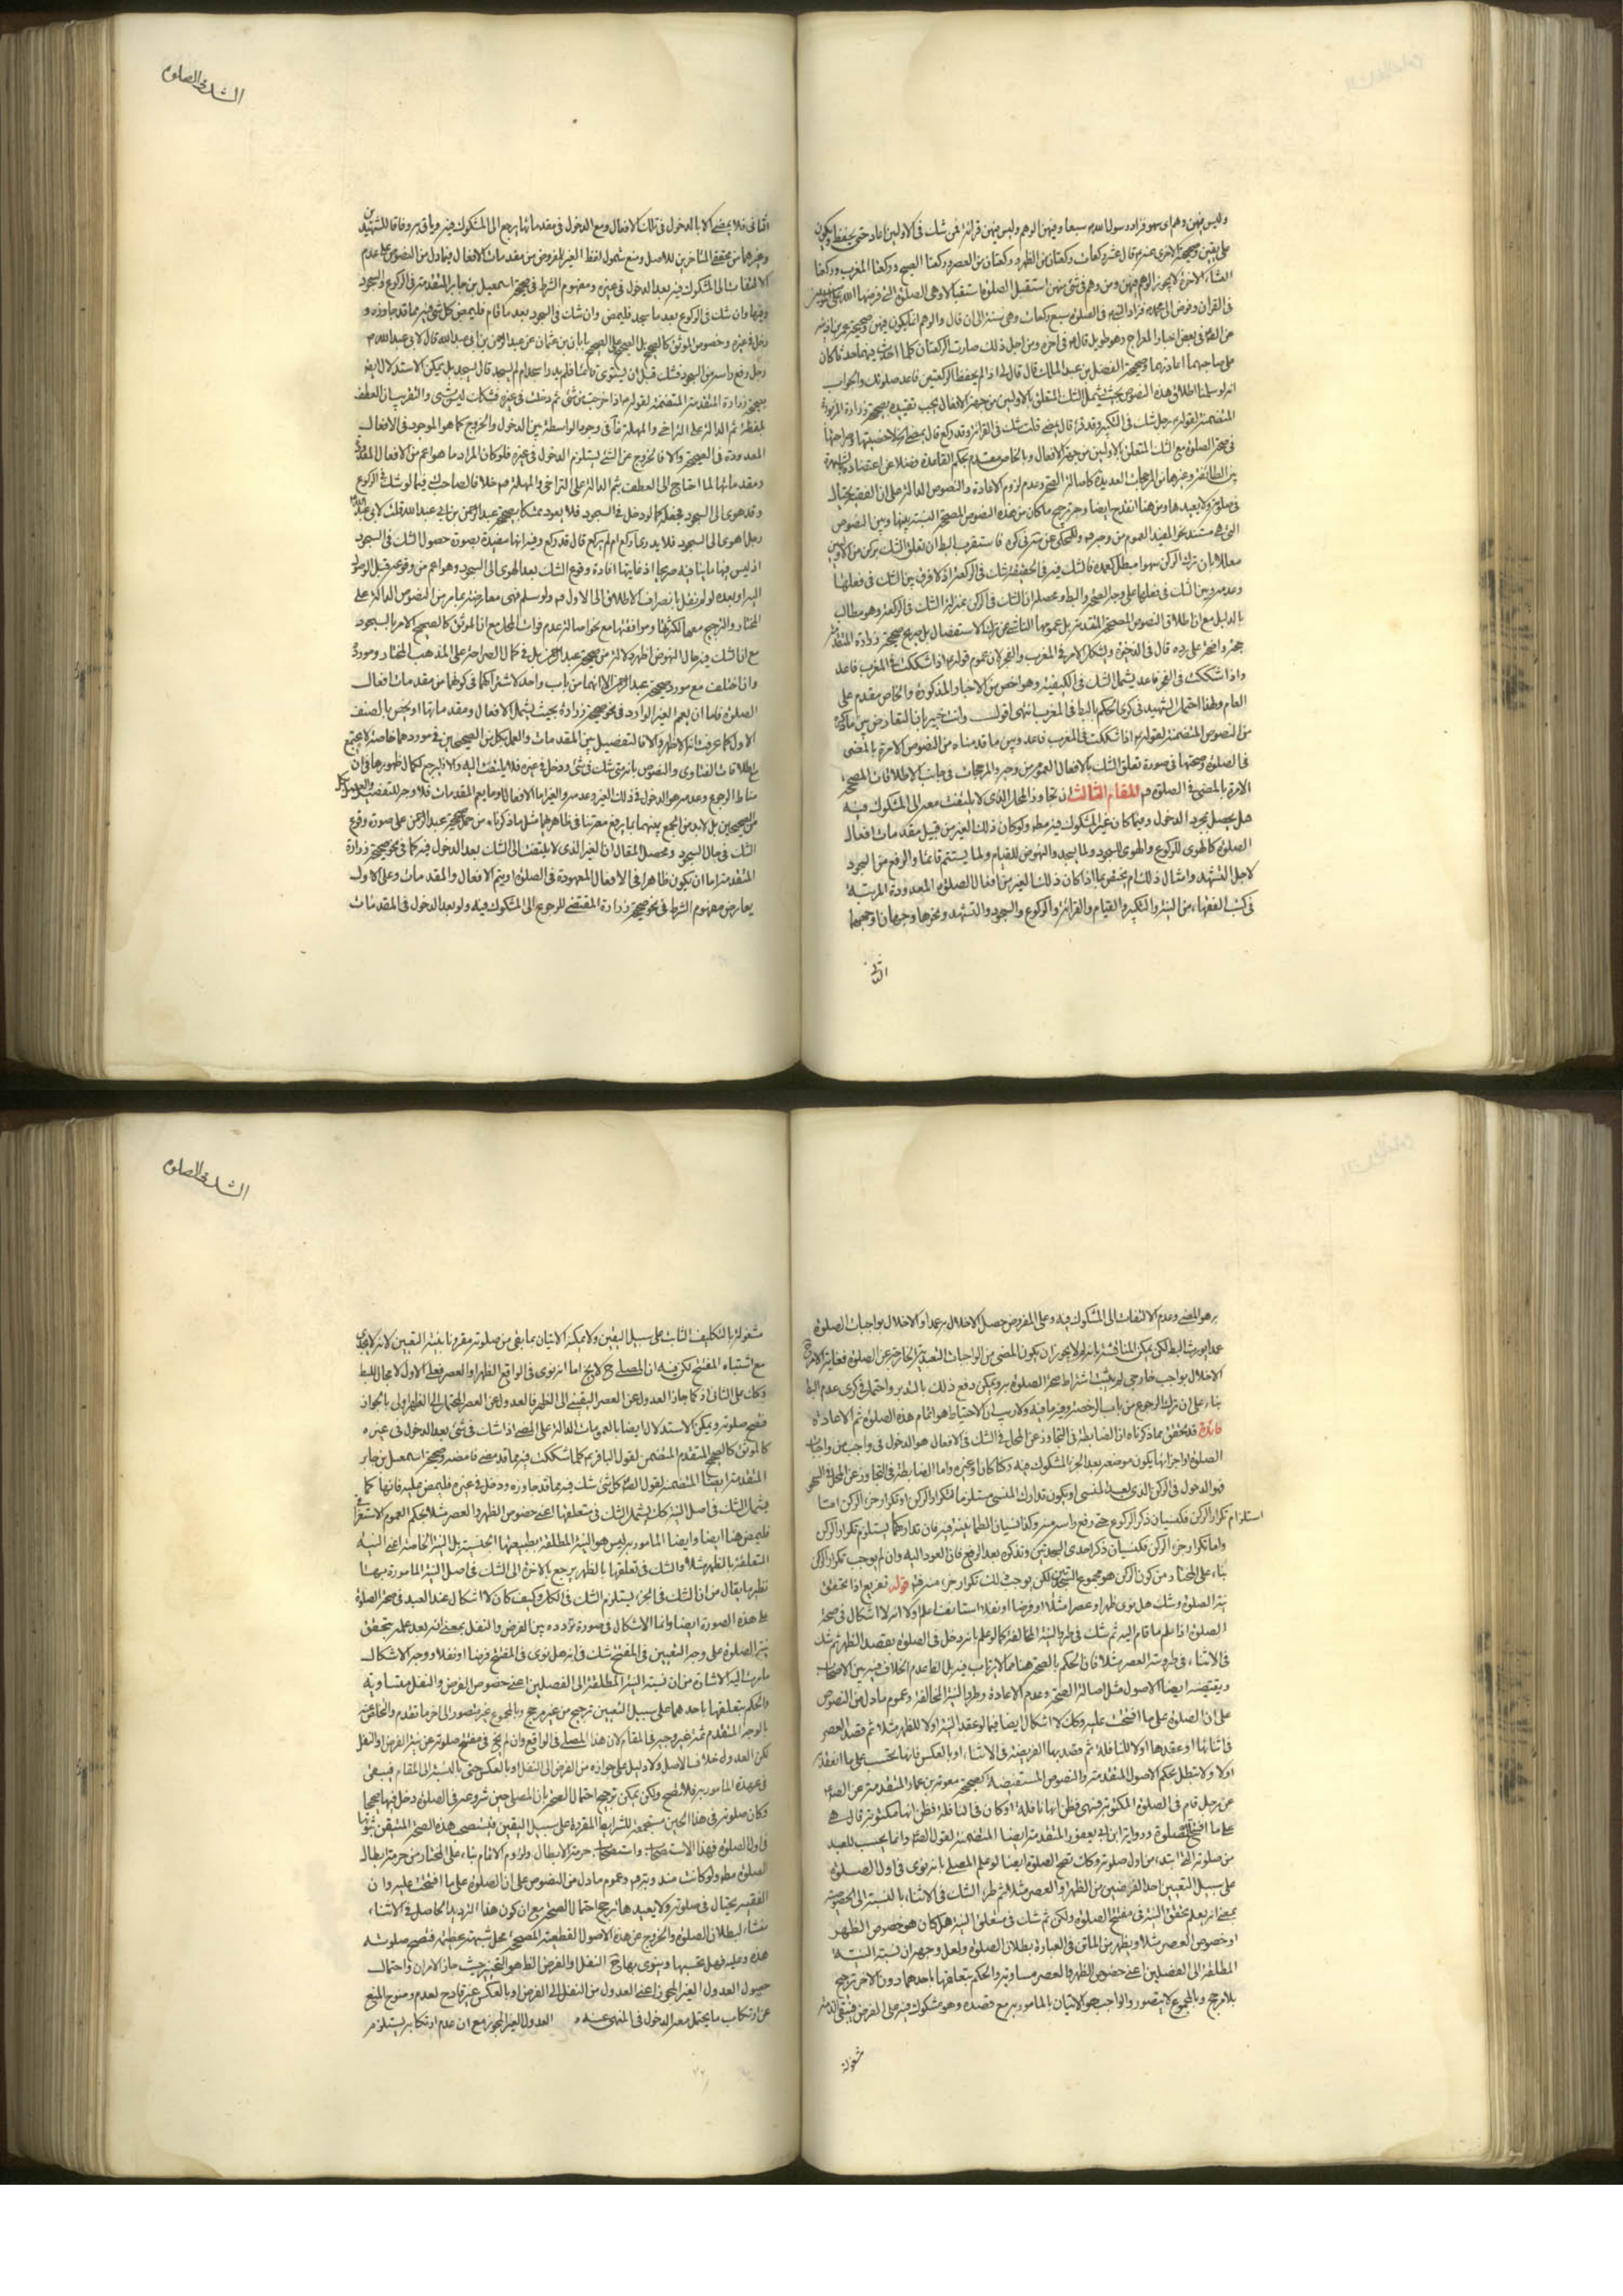 وليس فيهن وهم اى سهو فزاد رسول الله ص سبعا وفيهن الوهم وليس فيهن قرائة فمن شك فى الاولين اعاد حتى يحفظ ويكون
على يقين وصحيحة الاخرى عشر ركعات ركعتان من الظهر وركعتان من العصر وركعتا الصبح وركعتا المغرب وركعتا
العشاء الاخرة لا يجوز الوهم فيهن ومن وهم فى شئ منهن استقبل الصلوة استقبالا وهى الصلوة التى فرضها الله
فى القران وفوض الى محمد ص فزاد النبى فى الصلوة سبع ركعات وهى سنة الى ان قال والوهم انما يكون فيهن وصحيحة عمر بن اذينة
عن الصادق فى بعض اخبار المعراج وهو طويل قال فى اخره ومن اجل ذلك صارت الركعتان كلما احدث فيهما حدثا كان
على صاحبهما اعادتهما وصحيحة الفضل بن عبد الملك قال قال لى اذا لم يحفظ الركعتين فاعد صلوتك والجواب
انه لو سلمنا اطلاق هذه النصوص بحيث يشمل الشك المتعلق بالاولين من جهة الافعال يجب تقييده بصحيحة زرارة المروية
المتضمنة لقوله رجل شك فى التكبير وقد قرء قال يمضى قلت شك فى القرائة وقد ركع قال يمضى لاخصيتها وصراحتها
فى صحة الصلوة مع الشك المتعلق بالاولين من جهة الافعال وبالخاص مقدم بحكم القاعدة فضلا عن اعتضاده بالشهرة
بين الطائفة وغيرها من المرجحات العديدة كاصالة الصحة وعدم لزوم الاعادة والنصوص الدالة على ان الفقيه يحتال
فى صلوته ولا يعيدها ومن هنا انقدح ايضا وجه ترجيح ما كان من هذه النصوص المصححة النسبة بينها وبين النصوص
معللا بان ترك الركن سهوا مبطل كعمده فالشك فيه فى الحقيقة شك فى الركعة اذ لا فرق بين الشك فى فعلها
وعدمه وبين الشك فى فعلها على وجه الصحة والبطلان ومحصله ان الشك فى الركن بمنزلة الشك فى الركعة وهو مطالب
بالدليل مع ان اطلاق النصوص المصححة المتقدمة بل عمومها الناشى عن ترك الاستفصال بل صريح صحيحة زرارة المتقدمة
حجة واضحة على رده قال فى الذخيرة ويشكل الامر فى المغرب والفجر لان عموم قوله ع اذا شككت فى المغرب فاعد
واذا شككت فى الفجر فاعد يشمل الشك فى الكيفية وهو اخص من الاخبار المذكورة والخاص مقدم على
العام ولهذا احتمل الشهيد فى كرى الحكم بالبناء فى المغرب انتهى اقول وانت خبير بان التعارض بين ما ذكره
من النصوص المتضمنة لقوله ع اذا شككت فى المغرب فاعد وبين ما قدمناه من النصوص الامرة بالمضى
فى الصلوة وصحتها فى صورة تعلق الشك بالافعال العموم من وجه والمرجحات فى جانب الاطلاقات المصححة
الامرة بالمضى فى الصلوة المقام الثالث ان تجاوز المحل الذى لا يلتفت معه الى المشكوك فيه
هل يحصل بمجرد الدخول وفيما كان غير المشكوك فيه مطلقا ولو كان ذلك الغير من قبيل مقدمات افعال
الصلوة كالهوى للركوع والهوى للسجود ولما يسجد والنهوض للقيام ولما يستتم قائما والرفع من السجود
لاجل التشهد وامثال ذلك ام يختص بما اذا كان ذلك الغير من افعال الصلوة المعدودة المرتبة
فى كتب الفقهاء من النية والتكبير والقيام والقرائة والركوع والسجود والتشهد ونحوها وجهان اوجههما
الثانى
الشك فى الصلوة
الثانى فلا يمضى الا بالدخول فى تلك الافعال ومع الدخول فى مقدماتها يرجع الى المشكوك فيه وياتى به وفاقا للشهيدين
وغيرهما من محققى المتاخرين للاصل ومنع شمول لفظ الغير المفروض من مقدمات الافعال فيما دل من النصوص على عدم
الالتفات الى المشكوك فيه بعد الدخول فى غيره ومفهوم الشرط فى صحيحة اسمعيل بن جابر المتقدمة فى الركوع والسجود
وفيها وان شك فى الركوع بعد ما سجد فليمض وان شك فى السجود بعد ما قام فليمض كل شئ شك فيه مما قد جاوزه و
دخل فى غيره وخصوص الموثق كالصحيح بل الصحيح على الصحيح بابان بن عثمان عن عبد الرحمن بن ابى عبد الله قال لابى عبد الله ع
رجل رفع راسه من السجود فشك قبل ان يستوى قائما فلم يدر اسجد ام لم يسجد قال يسجد بل يمكن الاستدلال ايضا
بصحيحة زرارة المتقدمة المتضمنة لقوله ع اذا خرجت من شئ ثم دخلت فى غيره فشكك ليس بشئ والتقريب ان العطف
بلفظة ثم الدالة على التراخى والمهلة فى وجود الواسطة بين الدخول والخروج كما هو الموجود فى الافعال
المعدودة فى الصحيحة والا فالخروج عن الشئ يستلزم الدخول فى غيره فلو كان المراد ما هو اعم من الافعال المعدودة
ومقدماتها لما احتاج الى العطف بثم الدالة على التراخى والمهلة خلافا لصاحب ك فيما لو شك فى الركوع
وقد هوى الى السجود فجعله كما لو دخل فى السجود فلا يعود متمسكا بصحيحة عبد الرحمن بن ابى عبد الله قلت لابى عبد الله
رجل هوى الى السجود فلا يدرى اركع ام لم يركع قال قد ركع وفيه انها مقيدة بصورة حصول الشك فى السجود
اذ ليس فيها ما ينافيه صريحا اذ غايتها افادة وقوع الشك بعد الهوى الى السجود وهو اعم من وقوعه قبل الوصول
اليه او بعده لو لم نقل بانصراف الاطلاق الى الاول ولو سلم فهى معارضة بما مر من النصوص الدالة على
المختار والترجيح معها لكثرتها وموافقتها مع نحو اصالة عدم فوات المحل مع ان الموثق كالصحيح الامر بالسجود
مع ان الشك فيه حال النهوض اظهر دلالة من صحيحة عبد الرحمن بل فى كمال الصراحة على المذهب المختار ومورده
وان اختلف مع مورد صحيحة عبد الرحمن الا انهما من باب واحد لاشتراكهما فى كونهما من مقدمات افعال
الصلوة فاما ان يعم الغير الوارد فى نحو صحيحة زرارة بحيث يشمل الافعال ومقدماتها او يختص بالصنف
الاول كما عرفت انه الاظهر والا فالتفصيل بين المقدمات والعمل بكل من الصحيحين فى موردهما خاصة لا يجتمع
مع اطلاقات الفتاوى والنصوص بانه متى شك فى شئ ودخل فى غيره فلا يلتفت اليه والا فليرجع لكمال ظهورها فى ان
مناط الرجوع وعدمه هو الدخول فى ذلك الغير وعدمه والغير اما الافعال او ما يعم المقدمات فلا وجه للتفصيل والعمل بكل
من الصحيحين بل لا بد من الجمع بينهما بما يرفع معه التنافى ظاهرهما مثل ما ذكرناه من حمل صحيحة عبد الرحمن على صورة وقوع
الشك فى حال السجود ومحصل المقال ان الغير الذى لا يلتفت الى الشك بعد الدخول فيه كما فى نحو صحيحة زرارة
المتقدمة اما ان يكون ظاهرا فى الافعال المعهودة فى الصلوة او يعم الافعال والمقدمات وعلى الاول
يعارض مفهوم الشرط فى نحو صحيحة زرارة المقتضى للرجوع الى المشكوك فيه ولو بعد الدخول فى المقدمات
به هو المضى وعدم الالتفات الى المشكوك فيه وعلى المفروض حصل الاخلال به عمدا والاخلال بواجبات الصلوة
عمدا يورث البطلان لكن يمكن المناقشة بانه لم لا يجوز ان يكون المضى من الواجبات التعبدية الخارجة عن الصلوة فغاية الامر ح
الاخلال بواجب خارجى لم يثبت اشتراط صحة الصلوة به ويمكن دفع ذلك بالتدبر واحتمل فى كرى عدم البطلان
بناء على ان ترك الرجوع من باب الرخصة وفيه ما فيه ولا ريب ان الاحتياط هو اتمام هذه الصلوة ثم الاعادة
فائدة قد تحقق مما ذكرناه ان الضابطة فى التجاوز عن المحل فى الشك فى الافعال هو الدخول فى واجب من واجبات
الصلوة او اجزائها يكون موضعه بعد الجزء المشكوك فيه ركنا كان او غيره واما الضابطة فى التجاوز عن المحل فى السهو
فهو الدخول فى الركن الذى بعد المنسى او يكون تدارك المنسى مستلزما لتكرار الركن او تكرار جزء الركن اما
استلزام تكرار الركن فكنسيان ذكر الركوع حتى رفع راسه منه وكذا نسيان الطمانينة فيه فان تداركها يستلزم تكرار الركن
واما تكرار جزء الركن فكنسيان ذكر احدى السجدتين وتذكره بعد الرفع فان العود اليه وان لم يوجب تكرار الركن
بناء على المختار من كون الركن هو مجموع السجدتين لكن يوجب ذلك تكرار جزء منه قوله تفريع اذا تحقق
نية الصلوة وشك هل نوى ظهرا او عصرا مثلا او فرضا او نفلا استانف اعلم اولا انه لا اشكال فى صحة
الصلوة اذا علم ما قام اليه ثم شك فى طرو النية المخالفة كما لو علم بانه دخل فى الصلوة بقصد الظهر ثم شك
فى الاثناء فى طرو نية العصر مثلا فان الحكم بالصحة هنا مما لا يرتاب فيه بل الظاهر عدم الخلاف فيه بين الاصحاب
ويقتضيه ايضا الاصول مثل اصالة الصحة وعدم الاعادة وطرو النية المخالفة وعموم ما دل من النصوص
على ان الصلوة على ما افتتحت عليه وكذلك لا اشكال ايضا فيما لو عقد النية اولا للظهر مثلا ثم قصد العصر
فى اثنائها او عقدها اولا للنافلة ثم قصد بها الفريضة فى الاثناء او بالعكس فانها تحتسب على ما انعقدت
اولا ولا تبطل بحكم الاصول المتقدمة والنصوص المستفيضة كصحيحة معوية بن عمار المتقدمة عن الصادق
عن رجل قام فى الصلوة المكتوبة فسهى فظن انها نافلة او كان فى النافلة فظن انها مكتوبة قال هى
على ما افتتح الصلوة ورواية ابن ابى يعفور المتقدمة ايضا المتضمنة لقول الصادق وانما يحسب للعبد
من صلوته التى ابتدء من اول صلوته وكذلك تصح الصلوة ايضا لو علم المصلى بانه نوى فى اول الصلوة
على سبيل التعيين احد الفرضين من الظهر او العصر مثلا ثم طرء الشك فى الاثناء بالنسبة الى الخصوصية
بمعنى انه يعلم تحقق النية فى مفتتح الصلوة ولكن ثم شك فى متعلق النية هل كان هو خصوص الظهر
او خصوص العصر مثلا ويظهر من الماتن فى العبارة بطلان الصلوة ولعل وجهه ان نسبة النية
المطلقة الى الفصلين اعنى خصوص الظهر والعصر متساوية والحكم بتعلقها باحدهما دون الاخر ترجيح
بلا مرجح وبالمجموع لا يتصور والواجب هو الاتيان بالمامور به مع قصده وهو مشكوك فيه على الفرض فيبقى الذمة
مشغولة
الشك فى الصلوة
مشغولة بالتكليف الثابت على سبيل اليقين ولا يمكنه الاتيان بما بقى من صلوته مقرونا بنية التعيين لانه لا يجدى
مع اشتباه المفتتح لكن فيه ان المصلى ح لا يخ اما انه نوى فى الواقع الظهر او العصر فعلى الاول لا مجال للبطلان
وكذلك على الثانى اذ كما جاز العدول عن العصر اليقينى الى الظهر فالعدول عن العصر المحتمل الى الظهر اولى بالجواز
فتصح صلوته ويمكن الاستدلال ايضا بالعمومات الدالة على المضى اذا شك فى شئ بعد الدخول فى غيره
كالموثق كالصحيح المتقدم المتضمن لقول الباقر ع كلما شككت فيه مما قد مضى فامضه وصحيحة اسمعيل بن جابر
المتقدمة ايضا المتضمنة لقول الصادق كل شئ شك فيه مما قد جاوزه ودخل فى غيره فليمض عليه فانها كما
يشمل الشك فى اصل النية كذلك يشمل الشك فى متعلقها اعنى خصوص الظهر والعصر مثلا بحكم العموم الاستغراقى
فليمض هنا ايضا وايضا المامور به ليس هو النية المطلقة بطبيعتها الجنسية بل النية الخاصة اعنى النية
المتعلقة بالظهر مثلا والشك فى تعلقها بالظهر يرجع بالاخرة الى الشك فى اصل النية المامورة بها
نظير ما يقال من ان الشك فى الجزء يستلزم الشك فى الكل وكيف كان لا اشكال عند العبد فى صحة الصلوة
على هذه الصورة ايضا وانما الاشكال فى صورة تردده بين الفرض والنفل بمعنى انه بعد علمه بتحقق
نية الصلوة على وجه التعيين فى المفتتح شك فى انه هل نوى فى المفتتح فرضا او نفلا ووجه الاشكال
ما مرت اليه الاشارة من ان نسبة النية المطلقة الى الفصلين اعنى خصوص الفرض والنفل متساوية
والحكم بتعلقها باحدهما على سبيل التعيين ترجيح من غير مرجح وبالمجموع غير متصور الى اخر ما تقدم والتخلص عنه
بالوجه المتقدم ثمة غير وجيه فى المقام لان هذا المصلى فى الواقع وان لم يخ فى مفتتح صلوته عن نية الفرض او النفل
لكن العدول خلاف الاصل ولا دليل على جوازه من الفرض الى النفل او بالعكس حتى بالنسبة الى المقام فيبقى
فى عهدة المامور به فلا تصح ولكن يمكن ترجيح احتمال الصحة بان المصلى حين شروعه فى الصلوة دخل فيها صحيحا
وكان صلوته فى هذا الحين مستجمعة للشرايط المقررة على سبيل اليقين فيستصحب هذه الصحة المتيقن ثبوتها
فى اول الصلوة فهذا الاستصحاب واستصحاب حرمة الابطال ولزوم الاتمام بناء على المختار من حرمة ابطال
الصلوة مطلقا ولو كانت مندوبة وعموم ما دل من النصوص على ان الصلوة على ما افتتحت عليه وان
الفقيه يحتال فى صلوته ولا يعيدها ترجح احتمال الصحة مع ان كون هذا الترديد الحاصل فى الاثناء
منشاء لبطلان الصلوة والخروج عن هذه الاصول القطعية المصححة محل شبهة عظيمة فتصح صلوته
هذه وعليه فهل يحتسبها وينوى بها ح النفل او الفرض الظ هو التخيير حيث جاز الامران واحتمال
حصول العدول الغير المجوز اعنى العدول من النفل الى الفرض او بالعكس غير قادح لعدم وضوح المنع
عن ارتكاب ما يحتمل معه الدخول فى المنهى عنه العدول الغير المجوز مع ان عدم ارتكابه يستلزم